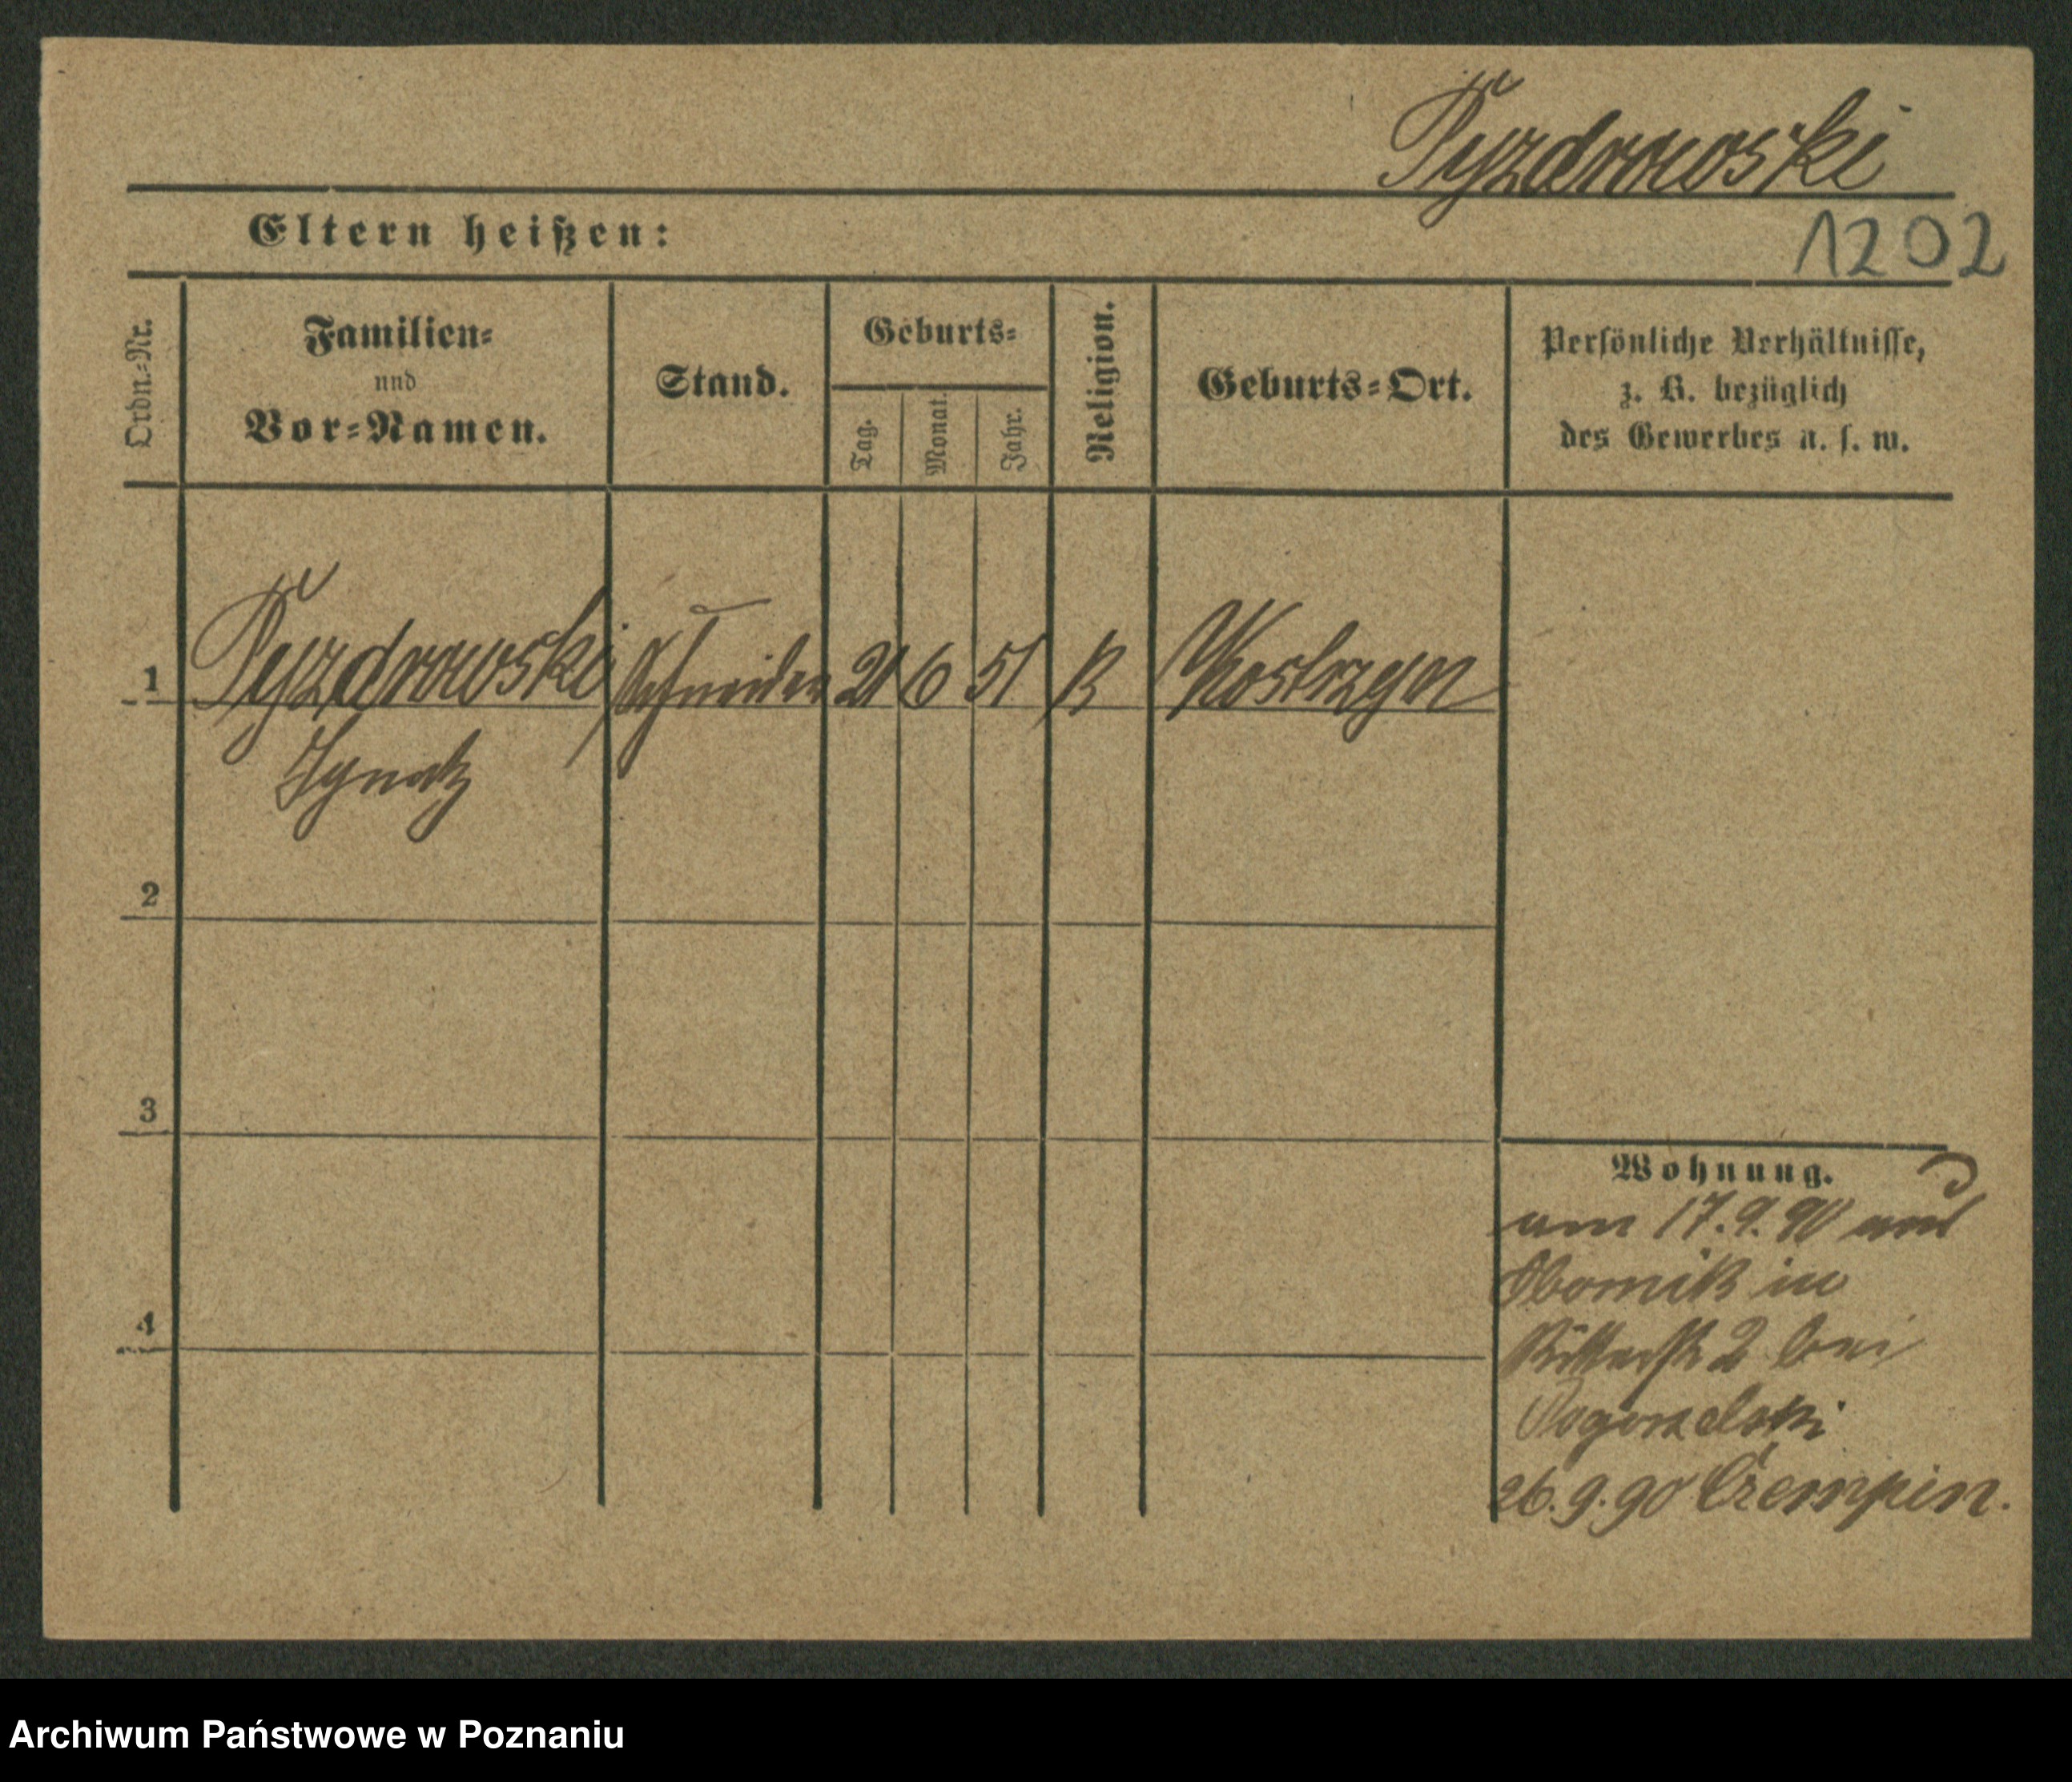 Pyzdrowski
1202
Eltern heißen:
Ordn.-Nr.
Familien-
und
Vor-Namen.
Stand.
Geburts-
Tag.
Monat.
Jahr.
Religion.
Geburts-Ort.
Persönliche Verhältnisse,
z. B. bezüglich
des Gewerbes u. s. w.
1 Pyzdrowski Schneider 21 6 51 K Kostrzyn
Ignatz
2
3
4
Wohnung.
am 17.9.90 aus
Obornik in
Ritterstr 2 bei
Pogorzelski
26.9.90 Czempin.
Archiwum Państwowe w Poznaniu